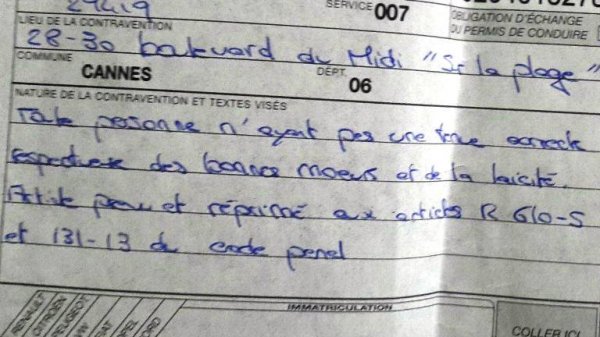 SERVICE 007
LIEU DE LA CONTRAVENTION
OBLIGATION D'ÉCHANGE
DU PERMIS DE CONDUIRE
28-30 boulevard du Midi "Sr la plage"
COMMUNE CANNES DÉPT. 06
NATURE DE LA CONTRAVENTION ET TEXTES VISÉS
Toute personne n'ayant pas une tenue correcte
respectueuse des bonnes moeurs et de la laicité.
et réprimé aux articles R 610-5
et 131-13 du code penal
IMMATRICULATION
RENAULT
CITROËN
PEUGEOT
VW
FIAT
OPEL
FORD
COLLER ICI